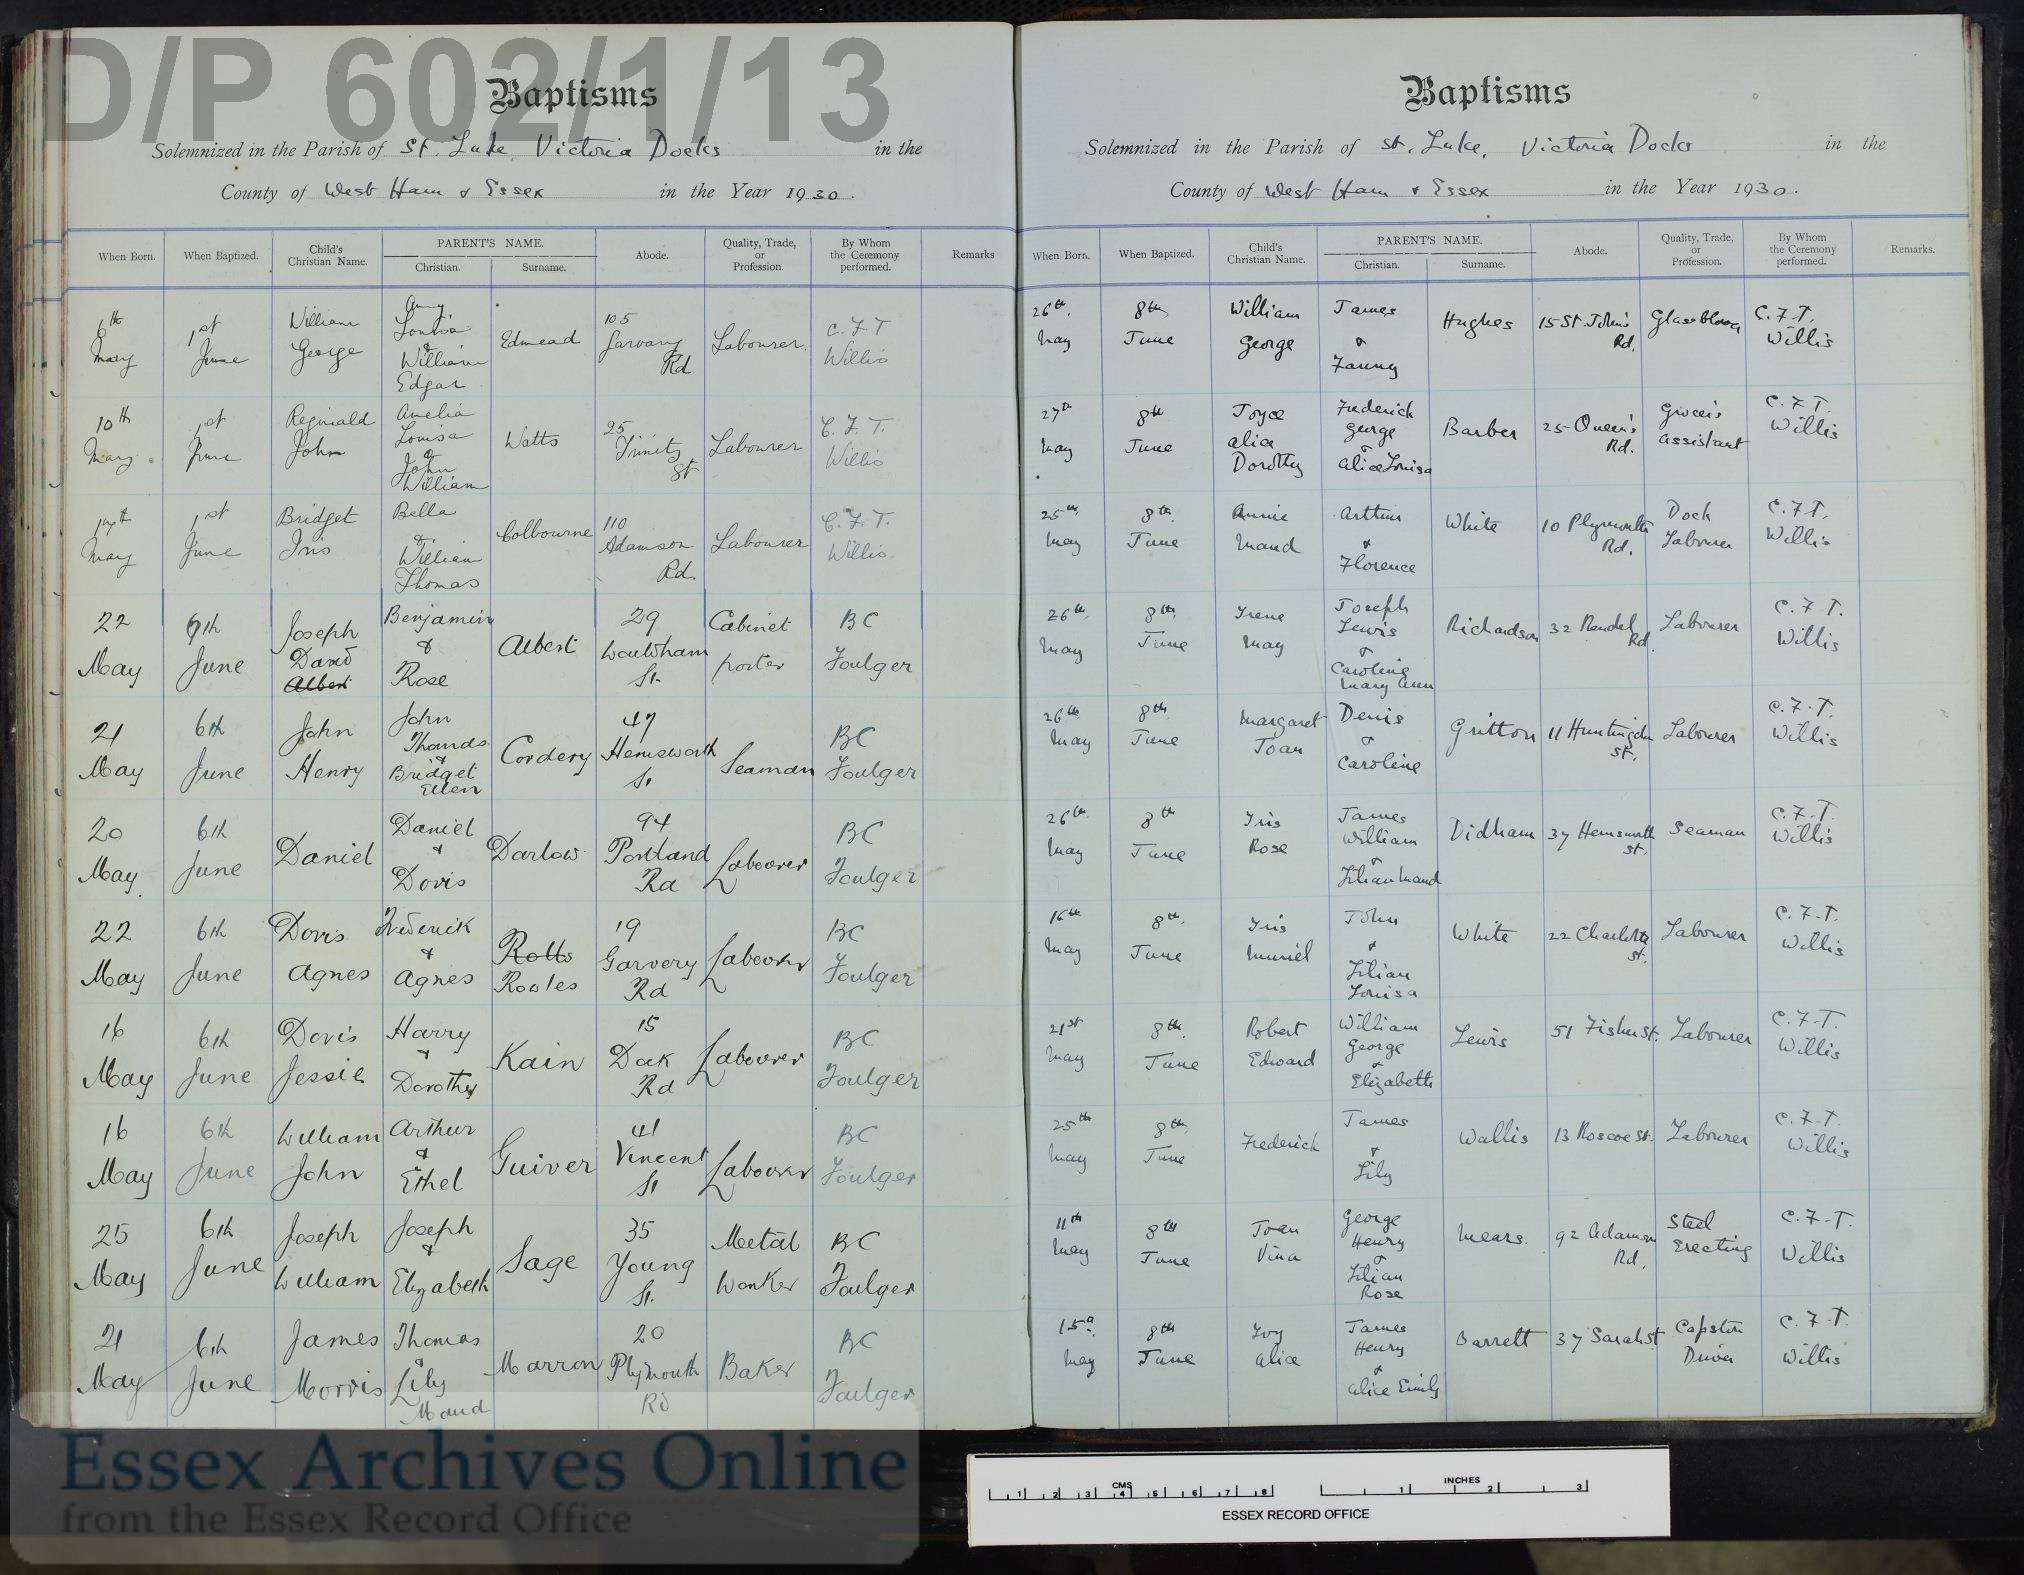 D/P 602/1/13
Baptisms
Solemnized in the Parish of St. Luke, Victoria Docks in the
County of West Ham & Essex in the Year 1930.
When Born. When Baptized. Child's Christian Name. PARENT'S NAME. Christian. Surname. Abode. Quality, Trade, or Profession. By Whom the Ceremony performed. Remarks
6th May 1st June William George Amy Louisa & William Edgar Edmead 105 Garvary Rd Labourer. C.F.T Willis
10th May 1st June Reginald John Amelia Louisa & John William Watts 25 Trinity St Labourer C.F.T. Willis
17th May 1st June Bridget Iris Bella & William Thomas Colbourne 110 Adamson Rd. Labourer C.F.T. Willis
22 May 6th June Joseph David Albert Benjamin & Rose Albert 29 Wouldham St. Cabinet porter BC Foulger
21 May 6th June John Henry John Thomas & Bridget Ellen Cordery 47 Hemsworth St Seaman BC Foulger
20 May. 6th June Daniel Daniel & Doris Darlow 94 Portland Rd Labourer BC Foulger
22 May 6th June Doris Agnes Frederick & Agnes Rotts Rowles 19 Garvery Rd Labourer BC Foulger
16 May 6th June Doris Jessie Harry & Dorothy Kain 15 Dock Rd Labourer BC Foulger
16 May 6th June William John Arthur & Ethel Guiver 41 Vincent St Labourer BC Foulger
25 May 6th June Joseph William Joseph & Elizabeth Sage 35 Young St. Metal Worker BC Foulger
21 May 6th June James Morris Thomas & Lily Maud Marron 20 Plymouth Rd Baker BC Foulger
Baptisms
Solemnized in the Parish of St. Luke, Victoria Docks in the
County of West Ham & Essex in the Year 1930.
When Born. When Baptized. Child's Christian Name. PARENT'S NAME. Christian. Surname. Abode. Quality, Trade, or Profession. By Whom the Ceremony performed. Remarks.
26th. May 8th June William George James & Fanny Hughes 15 St. John's Rd. Glassblower C.F.T. Willis
27th May 8th June Joyce Alice Dorothy Frederick George & Alice Louisa Barber 25 Queen's Rd. Grocer's Assistant C.F.T. Willis
25th. May 8th. June Annie Maud Arthur & Florence White 10 Plymouth Rd. Dock Labourer C.F.T. Willis
26th. May 8th. June Irene May Joseph Lewis & Caroline Mary Ann Richardson 32 Rendel Rd. Labourer C.F.T. Willis
26th May 8th. June Margaret Joan Denis & Caroline Gritton 11 Huntingdon St. Labourer C.F.T. Willis
26th. May 8th June Iris Rose James William & Lilian Maud Didham 37 Hemsworth St. Seaman C.F.T. Willis
16th May 8th. June Iris Muriel John & Lilian Louisa White 22 Charlotte St. Labourer C.F.T. Willis
21st May 8th. June Robert Edward William George & Elizabeth Lewis 51 Fisher St. Labourer C.F.T. Willis
25th May 8th. June Frederick James & Lily Wallis 13 Roscoe St. Labourer C.F.T. Willis
11th May 8th June Joan Vina George Henry & Lilian Rose Mears. 92 Adamson Rd. Steel Erecting C.F.T. Willis
15th. May 8th June Ivy Alice James Henry & Alice Emily Barrett 37 Sarah St Capstan Driver C.F.T. Willis
Essex Archives Online
from the Essex Record Office
CMS
1 2 3 4 5 6 7 8
INCHES
1 2 3
ESSEX RECORD OFFICE